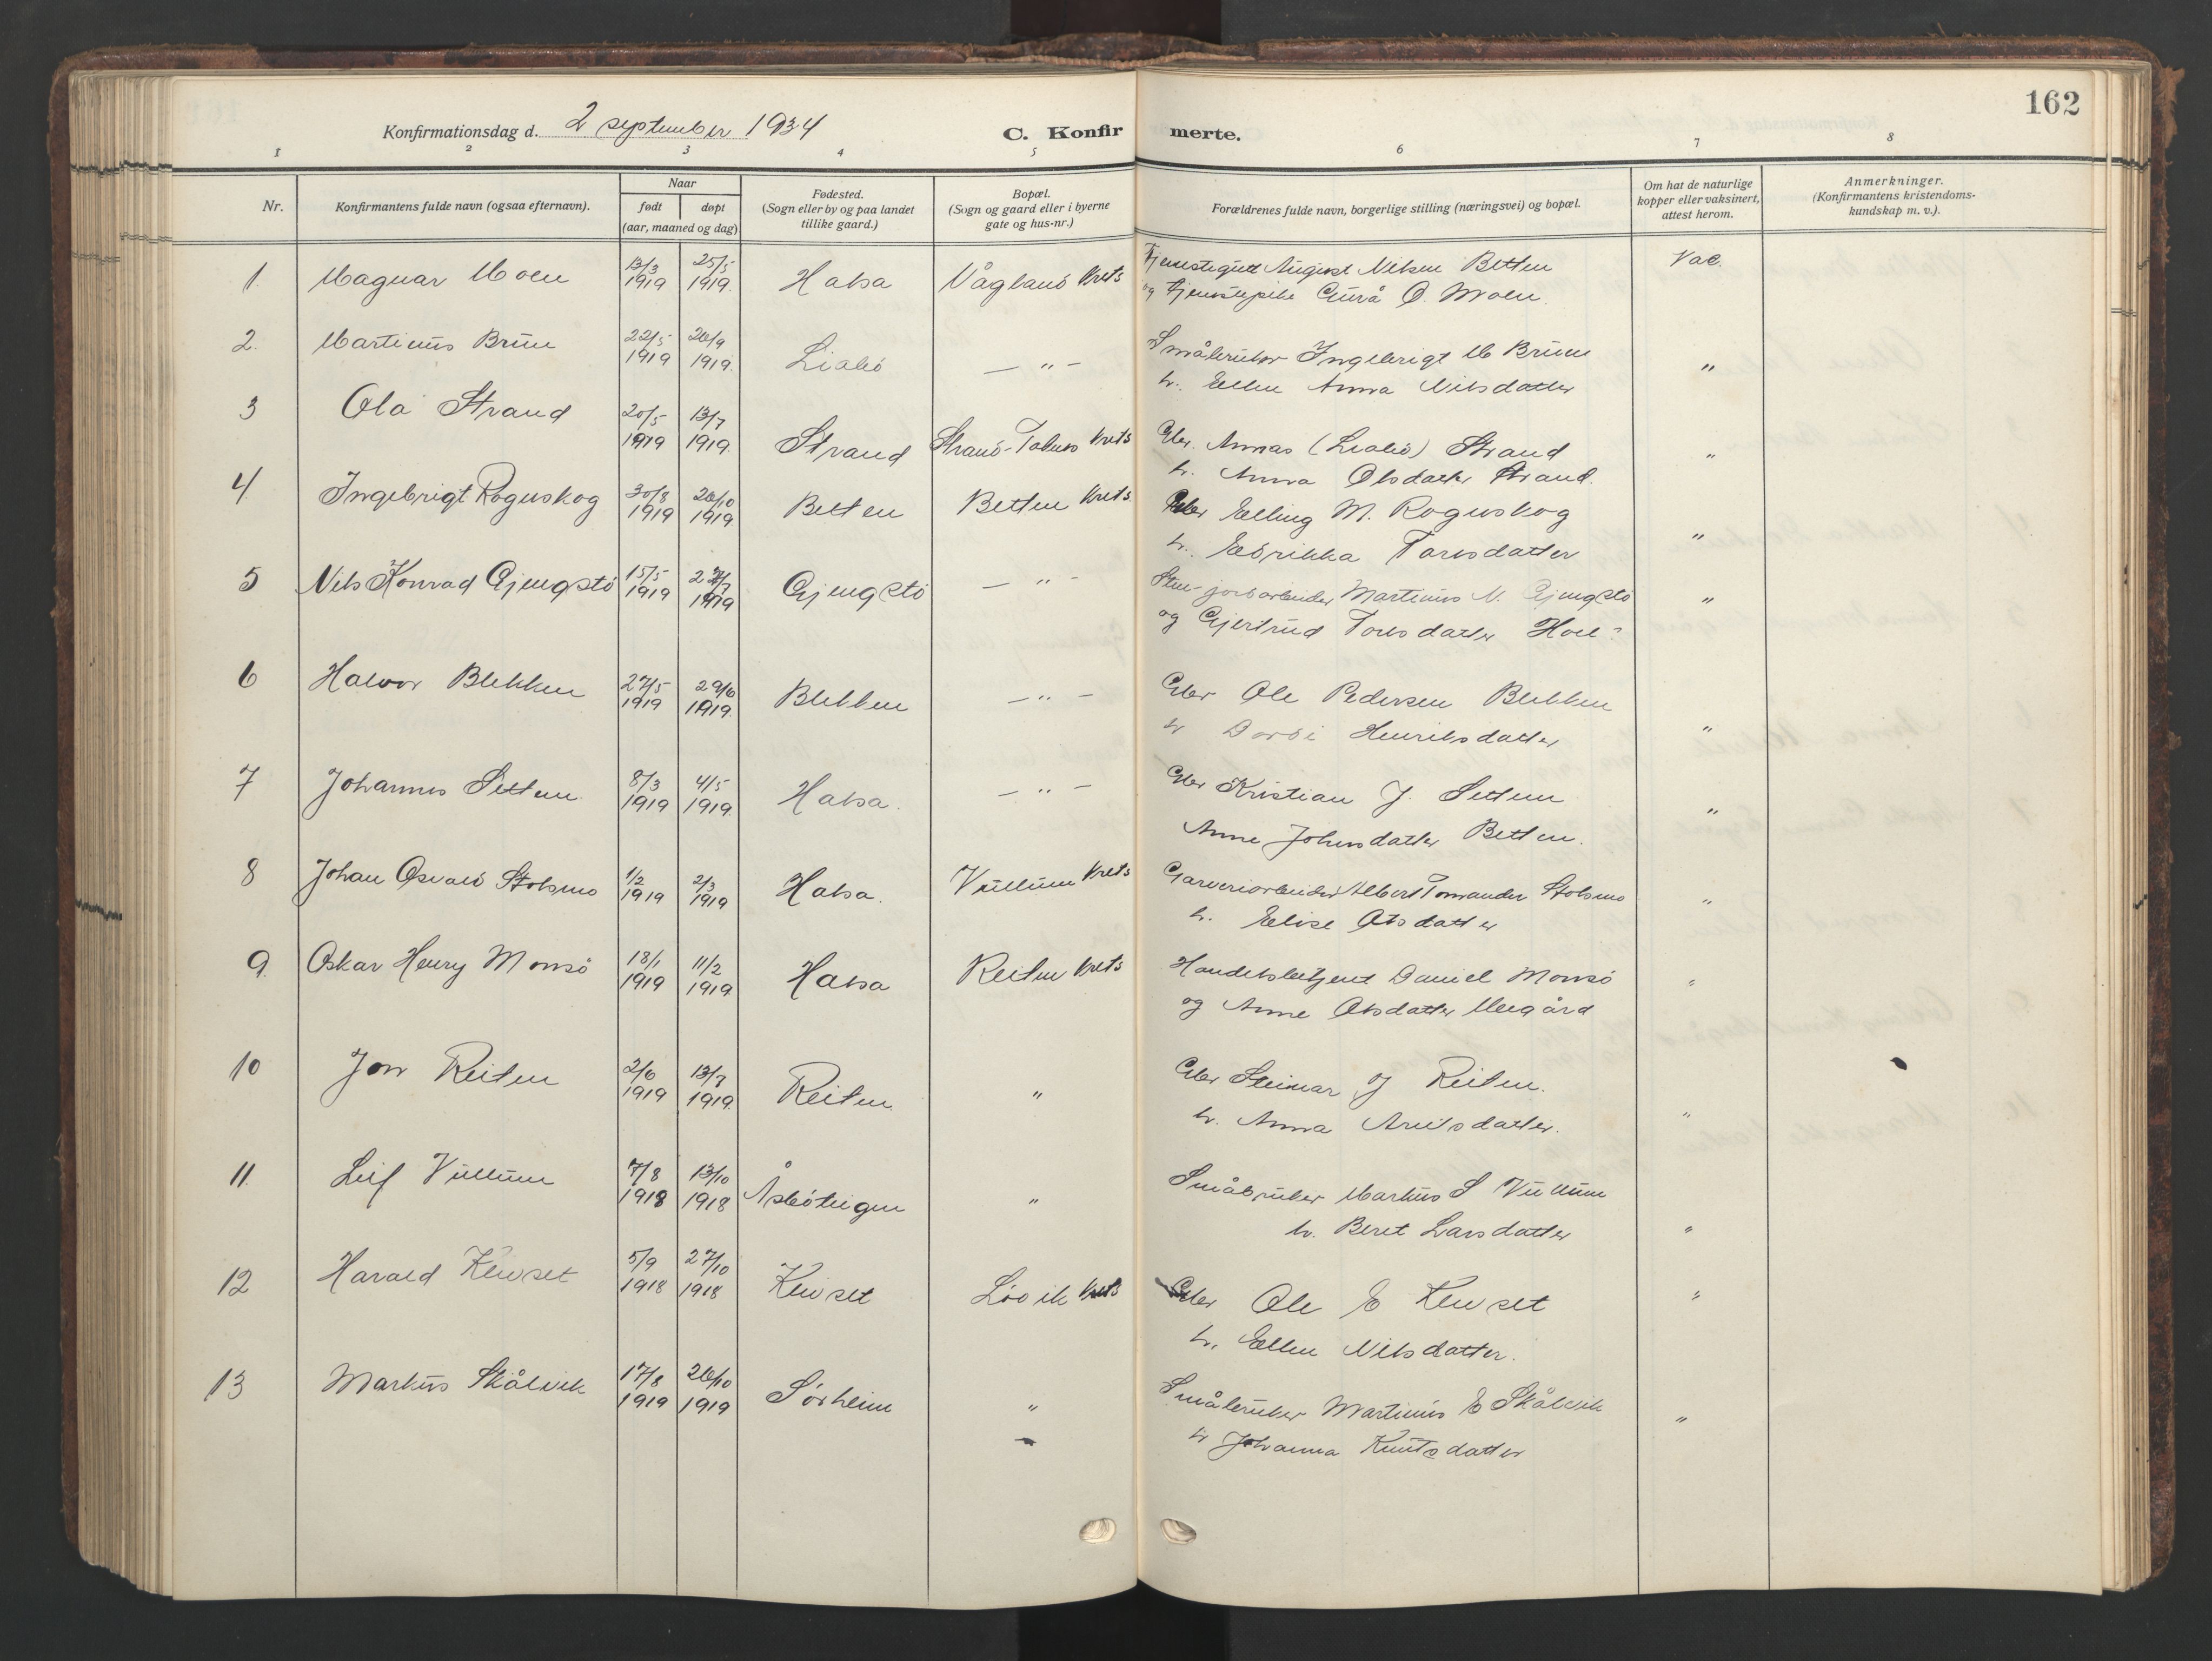 162
Konfirmationsdag d. 2 september 1934 C. Konfirmerte.
1 2 3 4 5 6 7 8
Nr. Konfirmantens fulde navn (ogsaa efternavn). Naar født døpt (aar, maaned og dag) Fødested. (Sogn eller by og paa landet tillike gaard.) Bopæl. (Sogn og gaard eller i byerne gate og hus-nr.) Forældrenes fulde navn, borgerlige stilling (næringsvei) og bopæl. Om hat de naturlige kopper eller vaksinert, attest herom. Anmerkninger. (Konfirmantens kristendoms-kundskap m. v.).
1. Magnar Moen 13/3 1919 25/5 1919. Halsa Vågland Krets Tjenestegutt August Nilsen Betten Vac.
og Tjenestepike Gurå O. Moen.
2. Martinus Bruun 22/5 1919 1919. Liabö — " — Småbruker Ingebrigt M Bruun "
h. Ellen Anna Nilsdatter
3 Ola Strand 20/5 1919 13/7 1919. Strand Strand- Krets Gbr. Annas (Liabö) Strand "
h. Anna Olsdatter Strand.
4 Ingebrigt Rognskog 30/8 1919 26/10 1919 Betten Betten Krets Gbr Elling M. Rognskog "
h. Edrikka Larsdatter
5 Nils Konrad Gjengstö 15/5 1919 1919 Gjengstö — " — Martinus N. Gjengstö "
og Gjertrud Toresdatter
6 Halvor Blekken 27/5 1919 1919. Blekken — " — Gbr Ole Pedersen Blekken
h Dordi Henriksdatter "
7 Johannes Settem 8/3 1919 4/5 1919. Halsa. — " — Gbr Kristian J. Settem "
Anne Johnsdatter Betten.
8 Johan Osvald Stolsmo 1/2 1919 2/3 1919 Halsa. Vullum Krets Garveriarbeider Albert Stolsmo "
h. Elise Olsdatter
9. Oskar Henry Monsö 18/1 1919 11/2 1919 Halsa Reiten Krets Handelsbetjent Daniel Monsö "
og Anne Olsdatter Megård
10 Jon Reiten 2/6 1919 13/7 1919. Reiten " Gbr Steinar J Reiten.
h. Anna Arntsdatter. "
11. Leif Vullum 7/8 1918 13/10 1918 Åsbötrgen " Småbruker Markus S Vullum
h. Beret Larsdatter "
12 Harald Kleivset 5/9 1918 27/10 1918 Kleivset Lövik Krets Gbr Ole E Kleivset "
h. Ellen Nilsdatter.
13 Markus Skålvik 17/8 1919 26/10 1919 Sörheim " Småbruker Martinus E Skålvik "
h Johanna Knutsdatter